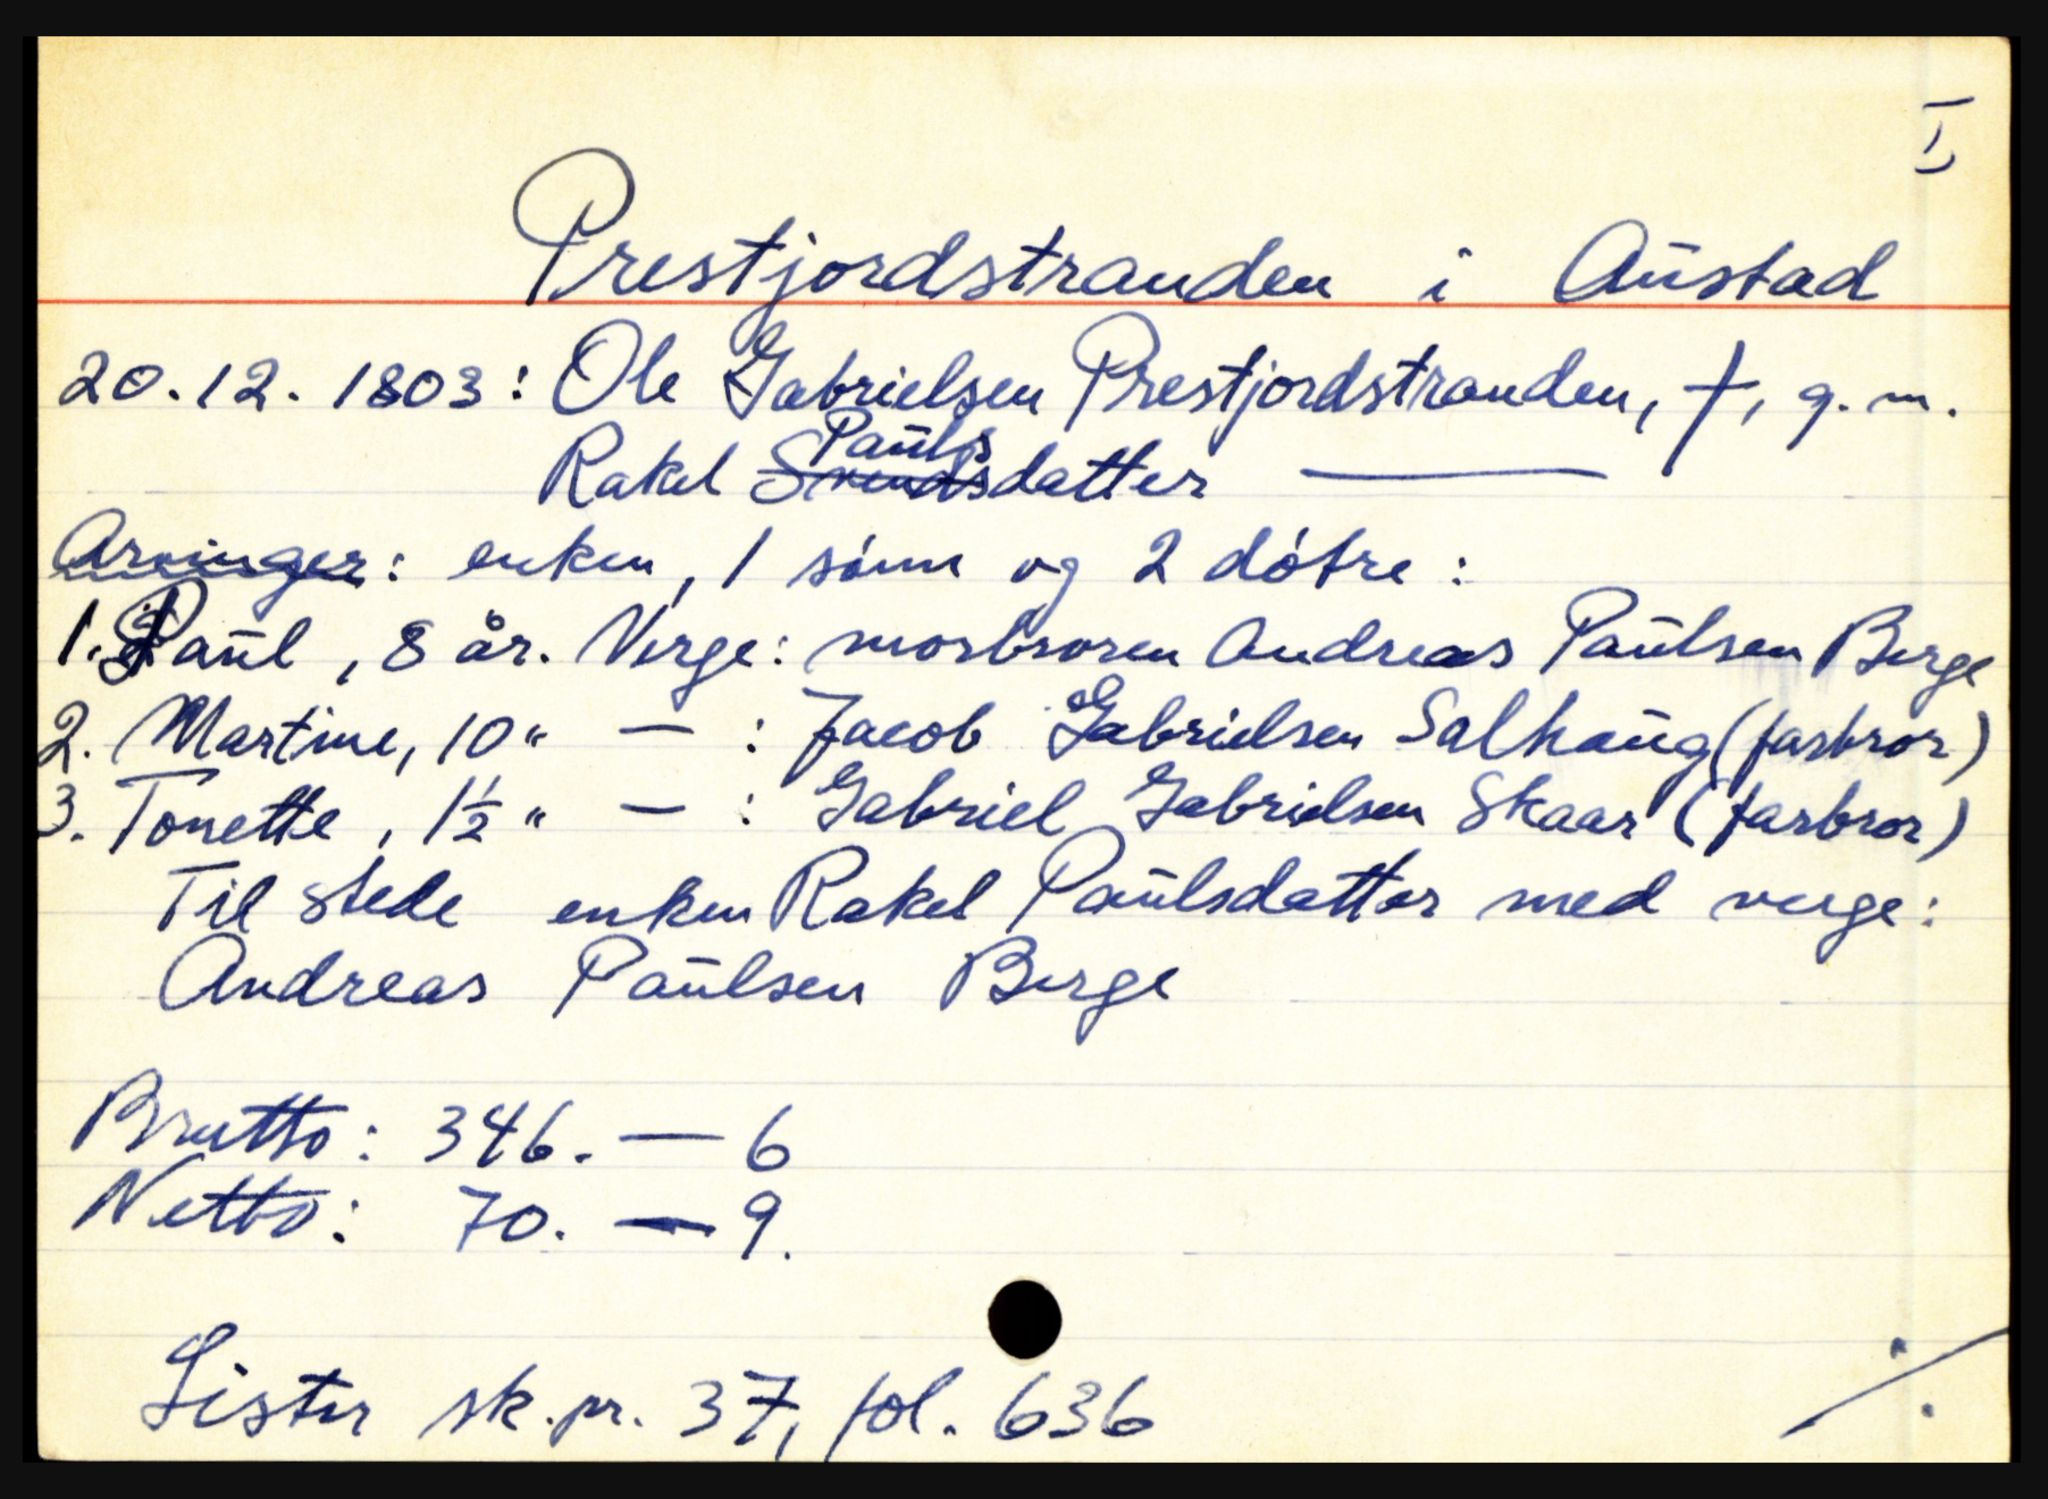 I
Prestjordstranden i Austad
20.12.1803: Ole Gabrielsen Prestjordstranden, †, g.m.
Pauls
Rakel Svendsdatter ———
Arvinger: enken, 1 sønn og 2 døtre:
1. Paul, 8 år. Verge: morbroren Andreas Paulsen Berge
2. Martine, 10 " — : Jacob Gabrielsen Salhaug (farbror)
3. Tonette, 1½ " — : Gabriel Gabrielsen Skaar (farbror)
Til stede enken Rakel Paulsdatter med verge:
Andreas Paulsen Berge
Brutto: 346. — 6
Netto: 70. — 9.
Lister sk.pr. 37, fol. 636
./.